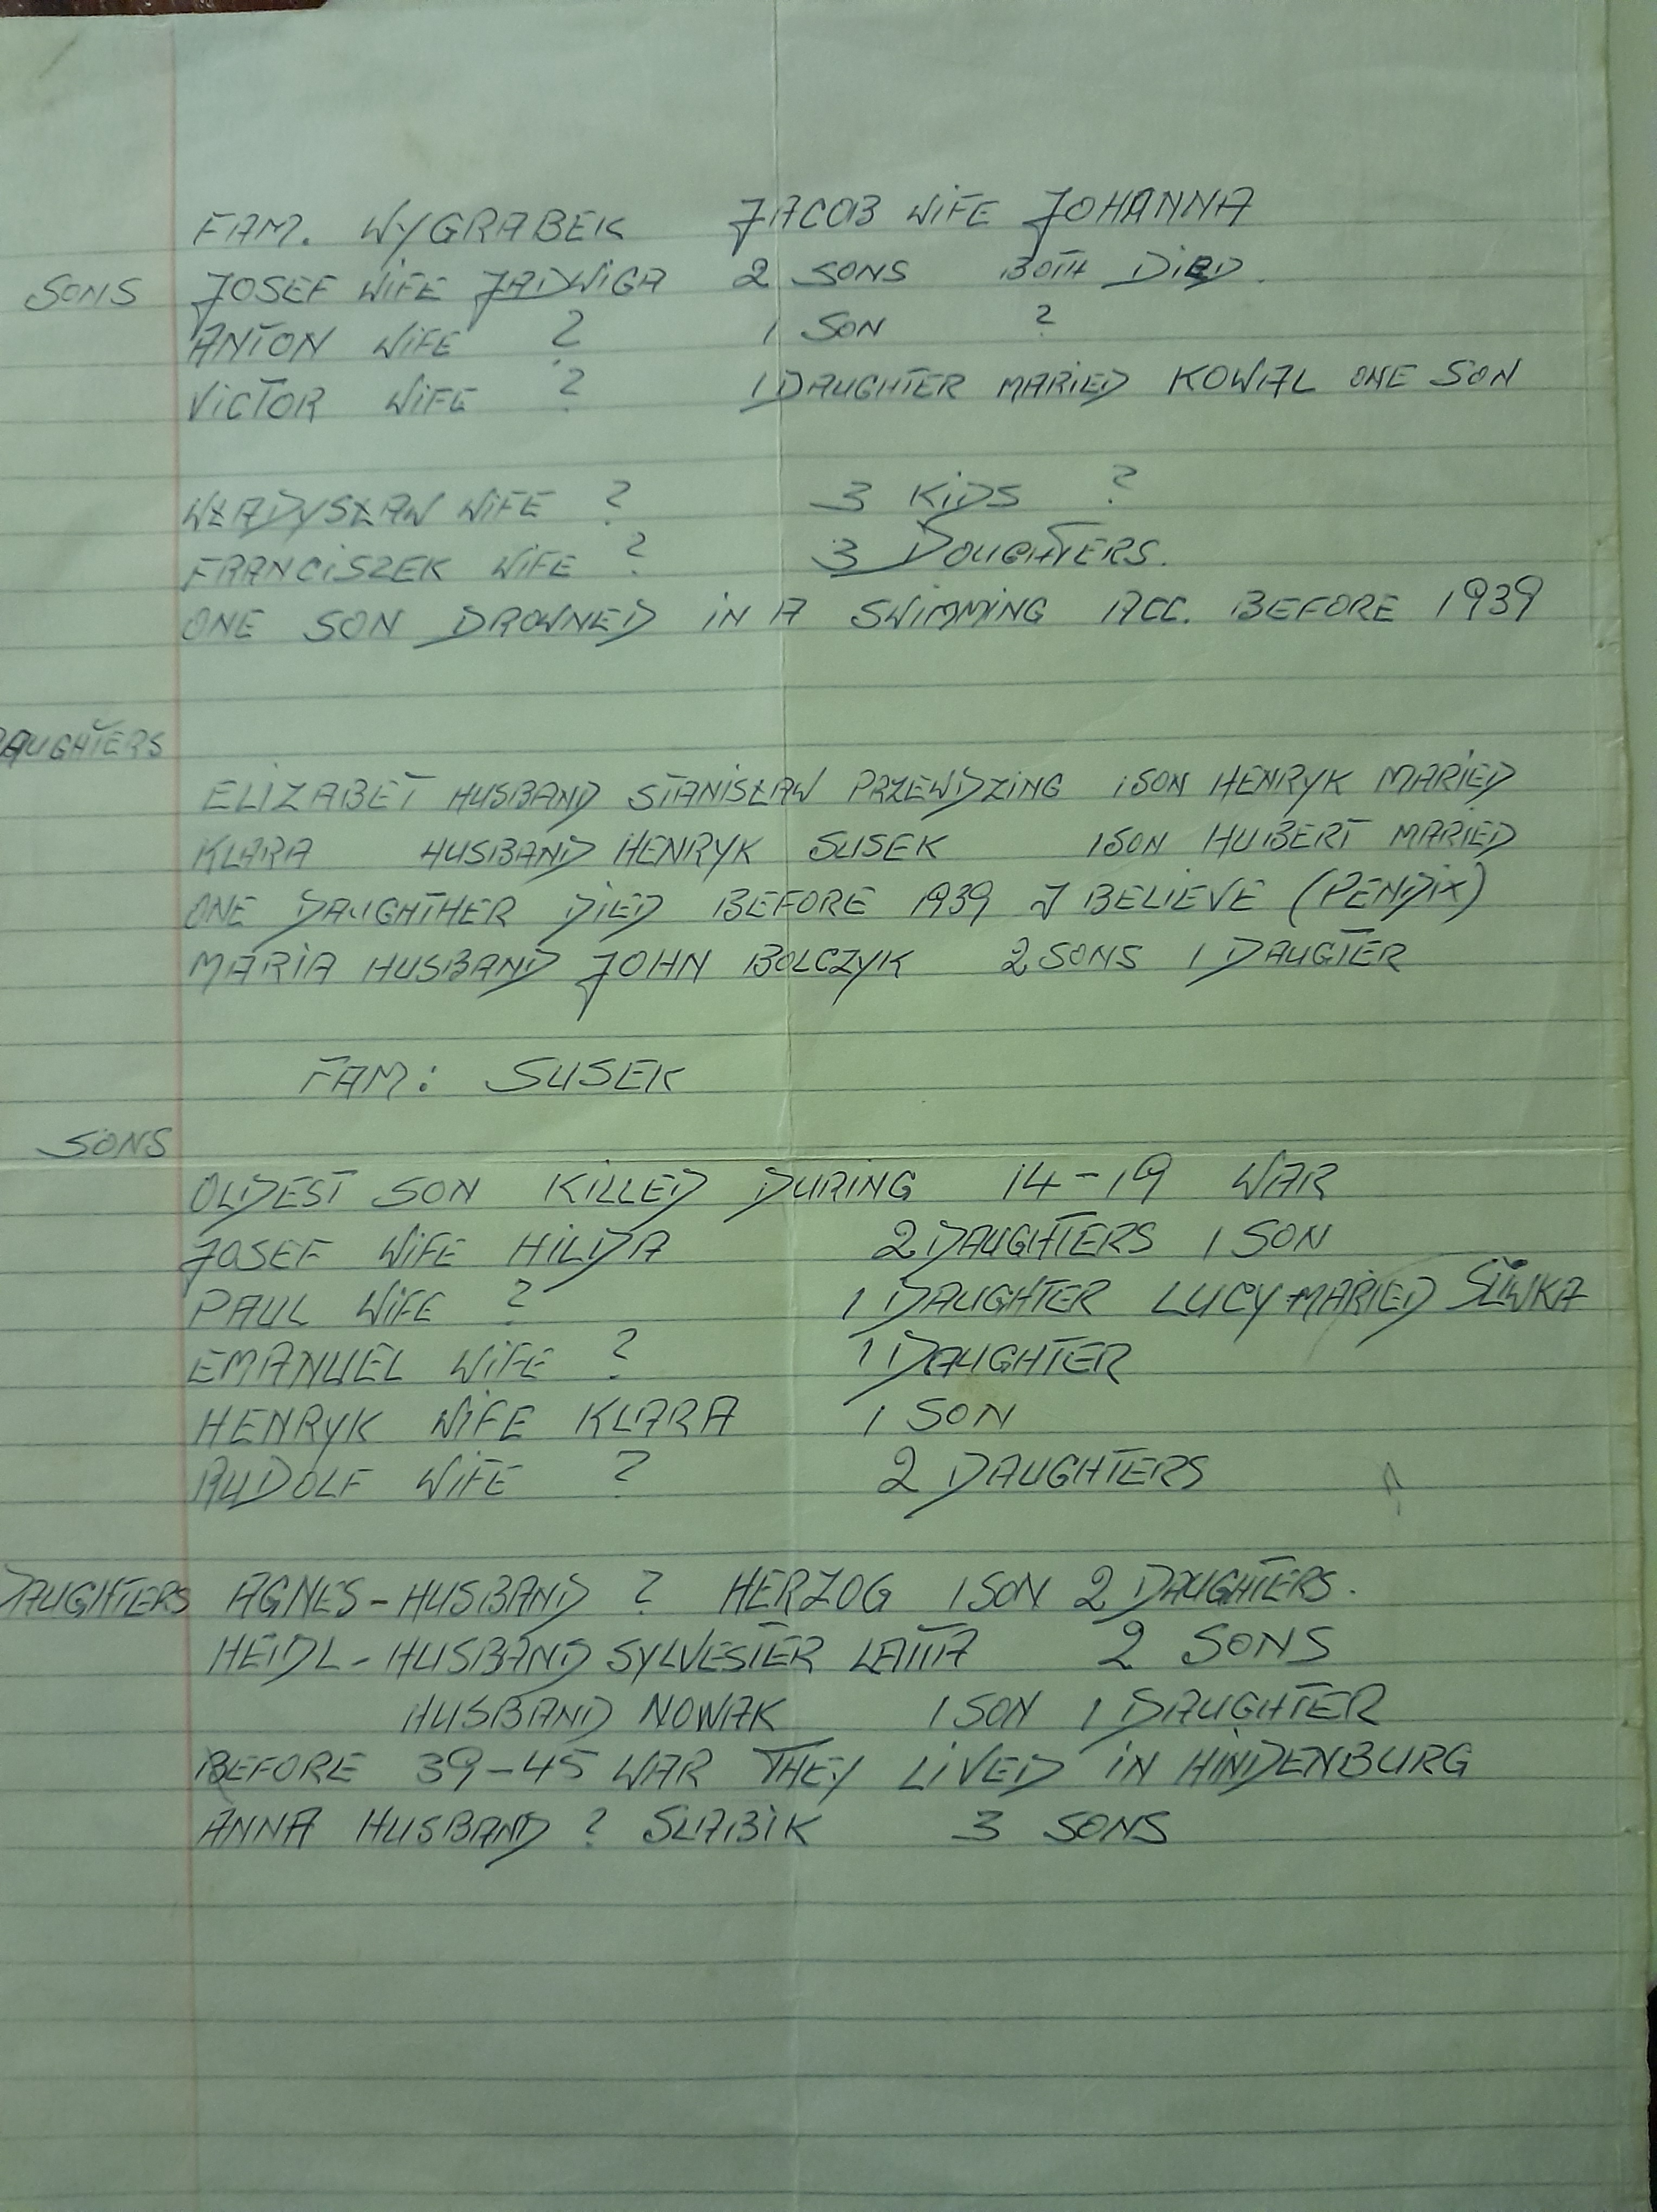 FAM. WYGRABEK JACOB WIFE JOHANNA
SONS JOSEF WIFE JADWIGA 2 SONS BOTH DIED.
ANTON WIFE ? 1 SON ?
VICTOR WIFE ? 1 DAUGHTER MARIED KOWAL ONE SON
WŁADYSŁAW WIFE ? 3 KIDS ?
FRANCISZEK WIFE ? 3 DOUGHTERS.
ONE SON DROWNED IN A SWIMMING ACC. BEFORE 1939
DAUGHTERS
ELIZABET HUSBAND STANISŁAW PRZEWDZING 1 SON HENRYK MARIED
KLARA HUSBAND HENRYK SUSEK 1 SON HUBERT MARIED
ONE DAUGHTHER DIED BEFORE 1939 I BELIEVE (PENDIX)
MARIA HUSBAND JOHN BOLCZYK 2 SONS 1 DAUGTER
FAM: SUSEK
SONS
OLDEST SON KILLED DURING 14-19 WAR
JOSEF WIFE HILDA 2 DAUGHTERS 1 SON
PAUL WIFE ? 1 DAUGHTER LUCY-MARIED ŚLIWKA
EMANUEL WIFE ? 1 DAUGHTER
HENRYK WIFE KLARA 1 SON
RUDOLF WIFE ? 2 DAUGHTERS
DAUGHTERS AGNES-HUSBAND ? HERZOG 1 SON 2 DAUGHTERS.
HEIDL-HUSBAND SYLVESTER 2 SONS
HUSBAND NOWAK 1 SON 1 DAUGHTER
BEFORE 39-45 WAR THEY LIVED IN HINDENBURG
ANNA HUSBAND ? SLABIK 3 SONS